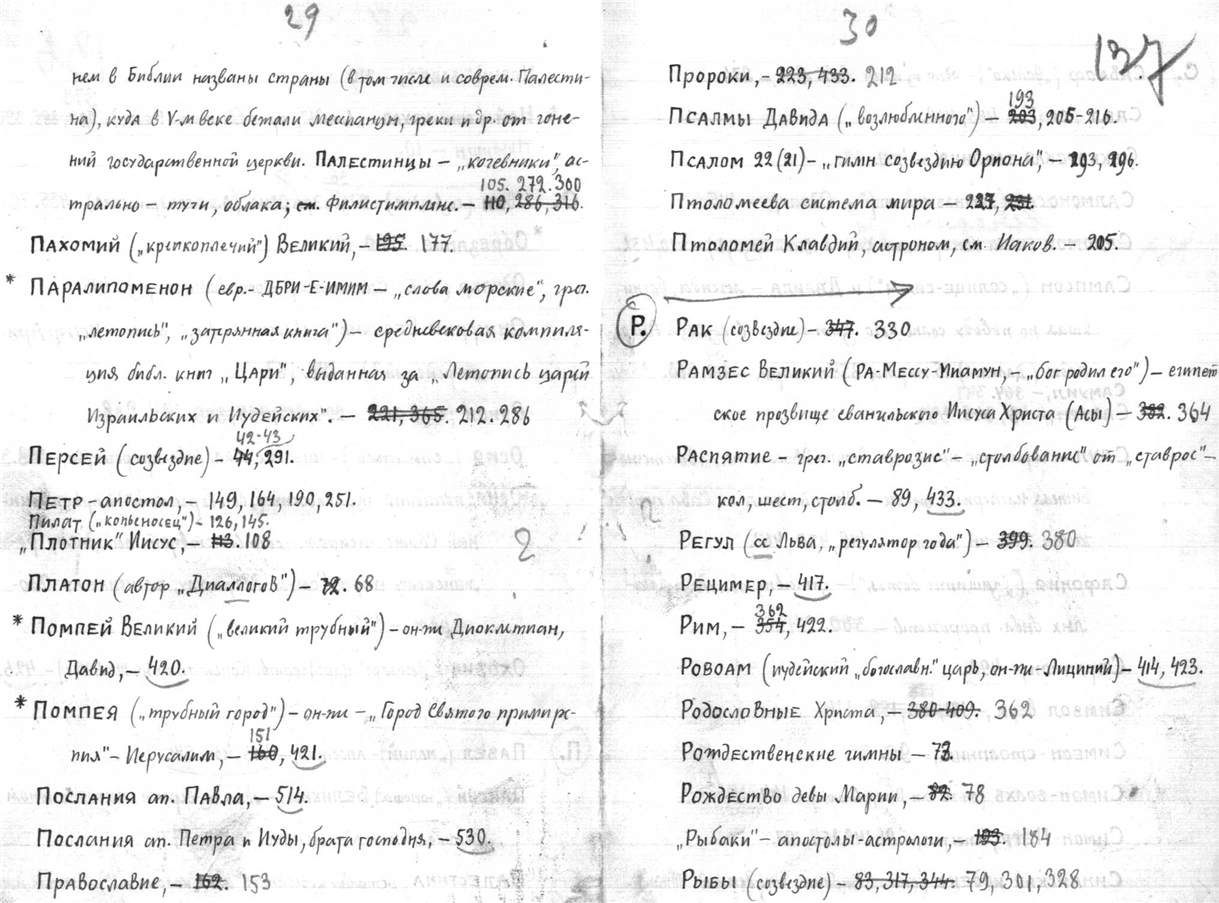 29
нем в Библии названы страны (в том числе и соврем. Палести-
на), куда в V-м веке бежали мессианцы, греки и др. от гоне-
ний государственной церкви. ПАЛЕСТИНЦЫ – „кочевники", ас-
105. 272. 300
трально – тучи, облака; см. Филистимляне. – 110, 286, 316.
ПАХОМИЙ („крепкоплечий") ВЕЛИКИЙ, – 195. 177.
* ПАРАЛИПОМЕНОН (евр. – ДБРИ-Е-ИМИМ – „слова морские", греч.
„летопись", „затерянная книга") – средневековая компиля-
ция библ. книг „Цари", выданная за „Летопись царей
Израильских и Иудейских". – 221, 365. 212. 286
42-43
ПЕРСЕЙ (созвездие) – 44, 291.
ПЕТР – апостол, – 149, 164, 190, 251.
Пилат („копьеносец") – 126, 145.
„ПЛОТНИК" Иисус, – 113. 108
ПЛАТОН (автор „Диаллогов") – 72. 68
* ПОМПЕЙ ВЕЛИКИЙ („великий трубный") – он-же Диоклитиан,
Давид, – 420.
* ПОМПЕЯ („трубный город") – он-же – „Город Святого примире-
151
ния" – Иерусалим, – 160, 421.
ПОСЛАНИЯ ап. ПАВЛА, – 514.
ПОСЛАНИЯ ап. Петра и Иуды, брата господня, – 530.
ПРАВОСЛАВИЕ, – 162. 153
2
30
137
Пророки, – 223, 433. 212
193
ПСАЛМЫ ДАВИДА („возлюбленного") – 203, 205-216.
ПСАЛОМ 22 (21) – „гимн созвездию Ориона", – 293, 296.
Птоломеева система мира – 227, 291.
Птоломей Клавдий, астроном, см. Иаков. – 205.
Р.
РАК (созвездие) – 347. 330
РАМЗЕС ВЕЛИКИЙ (РА-МЕССУ-МИАМУН, – „бог родил его") – египет
ское прозвище еванильского Иисуса Христа (Асы) – 382. 364
РАСПЯТИЕ – греч. „ставрозис" – „столбование" от „ставрос" –
кол, шест, столб. – 89, 433.
РЕГУЛ (сс Льва, „регулятор года") – 399. 380
РЕЦИМЕР, – 417.
362
РИМ, – 354, 422.
РОВОАМ (иудейский „богославн." царь, он-же – Лициний) – 414, 423.
РОДОСЛОВНЫЕ Христа, – 380-409. 362
РОЖДЕСТВЕНСКИЕ ГИМНЫ – 78.
РОЖДЕСТВО девы Марии, – 82. 78
„Рыбаки" – апостолы-астрологи, – 193. 184
РЫБЫ (созвездие) – 83, 317, 344. 79, 301, 328